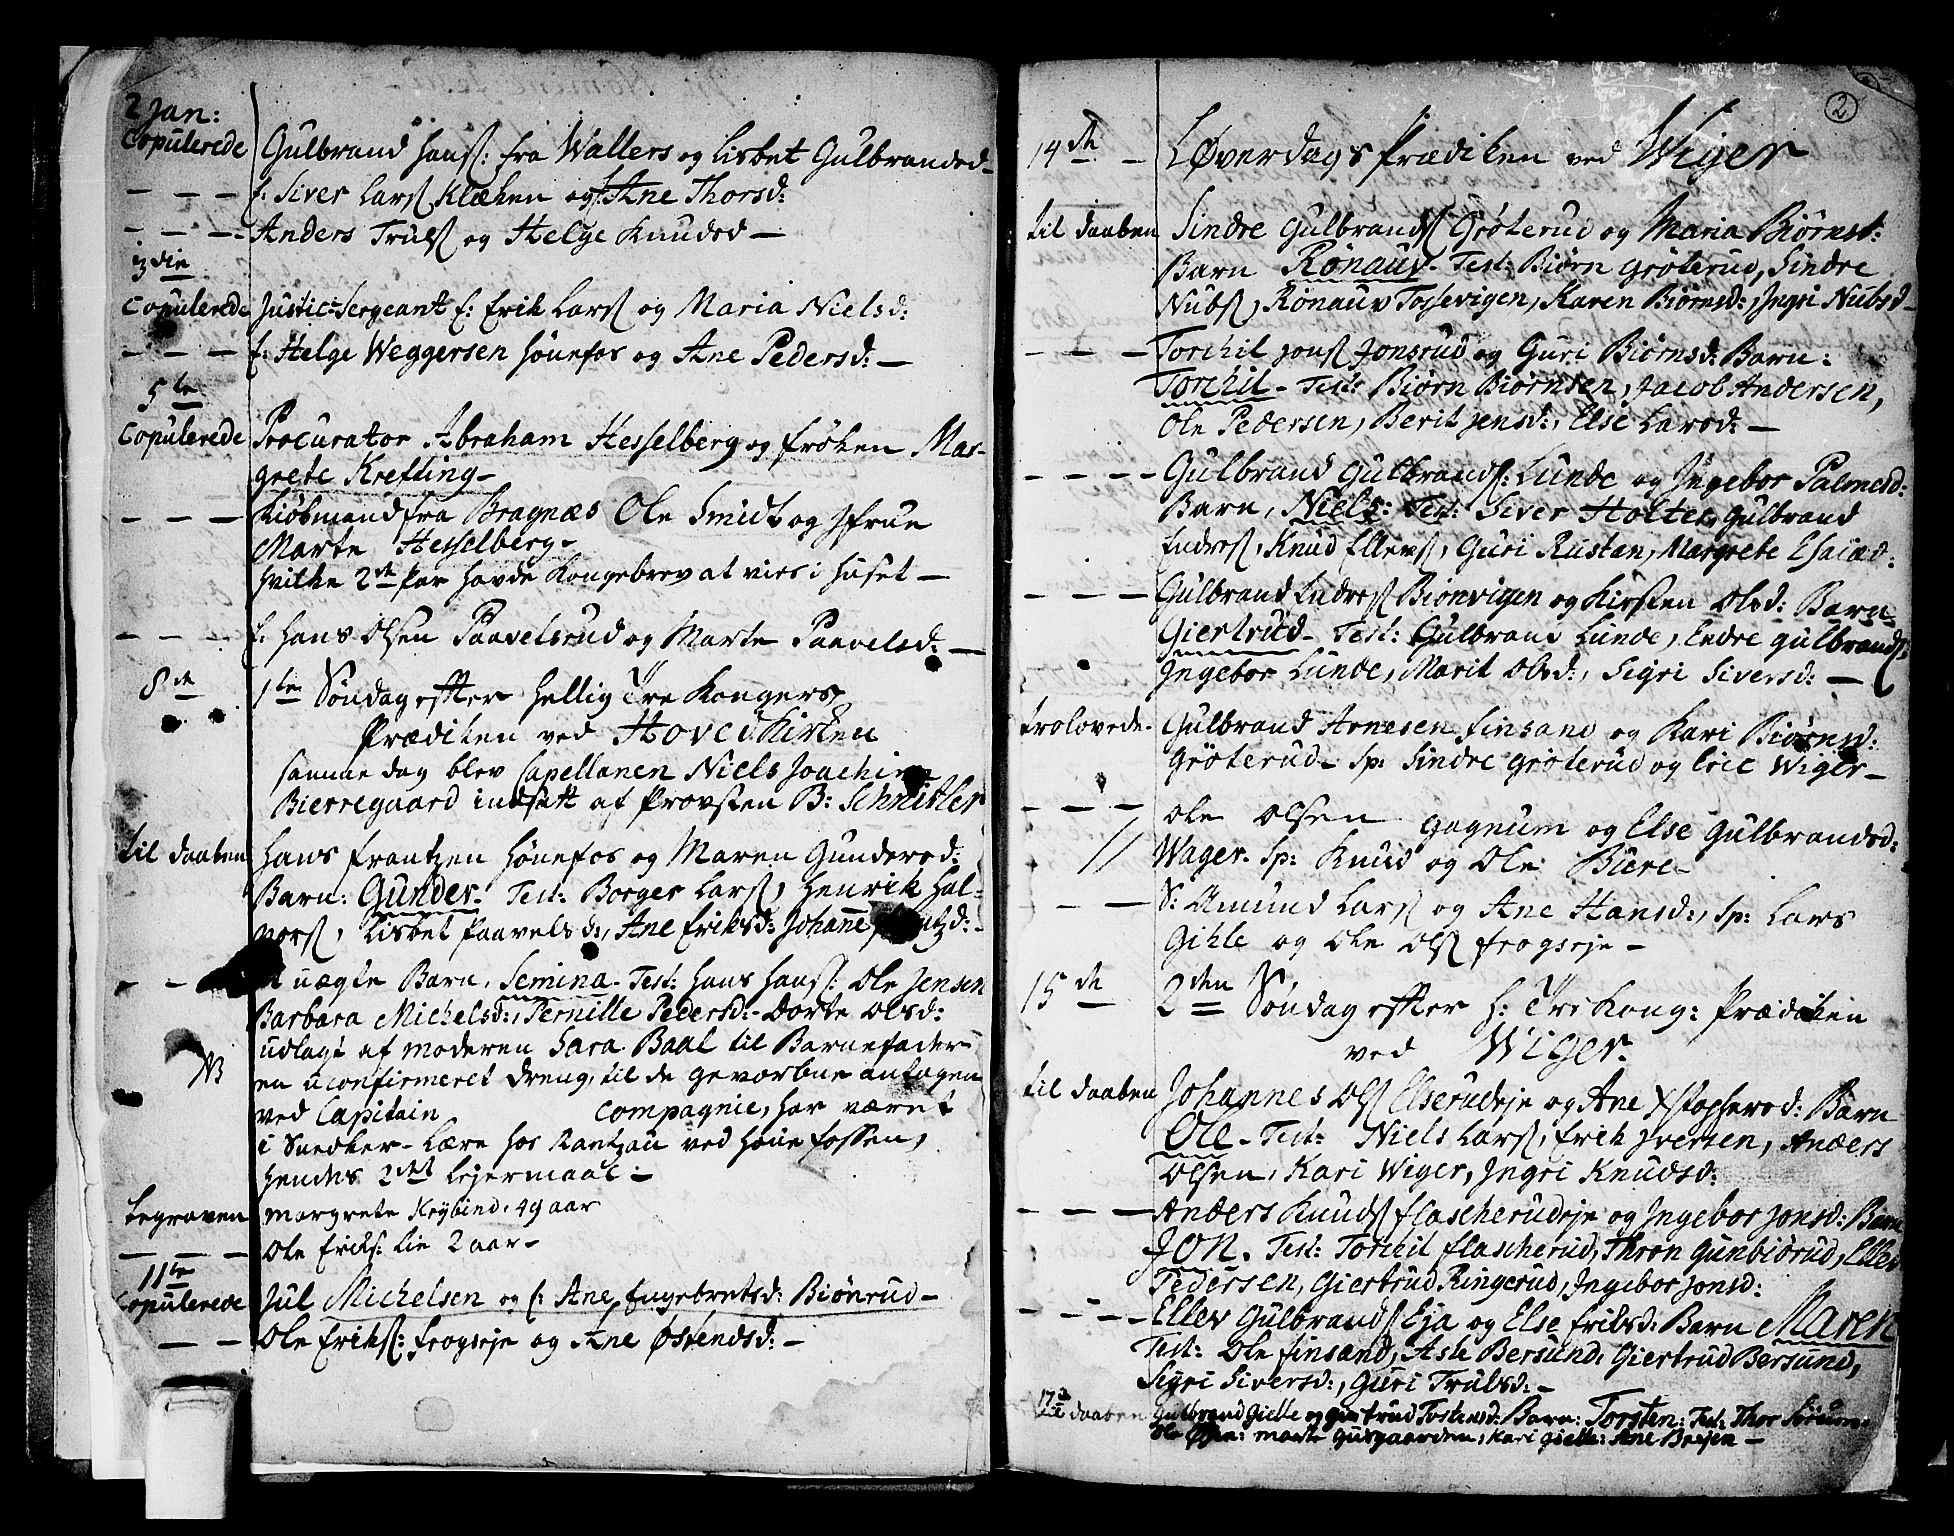 2 Jan:
Copulerede Gulbrand Hansß: fra Wallers og Lisbet Gulbrandsd
– – – S: Siver Larsß Klækken og S: Ane Thorsd:
– – – Anders Trulsß og Helge Knudsd –
3die
Copulerede Justic-Sergeant S: Erik Larsß og Maria Nielsd:
– – – S: Helge Weggersen Hönefos og Ane Pedersd: –
5te
Copulerede Procurator Abraham Hesselberg og Fröken Mar-
grete Krefting –
– – – Kiöbmand fra Bragnæs Ole Smidt og Jfrue
Marte Hesselberg –
hvilke 2de Par havde Kongebrev at vies i Huset –
– – – S: Hans Olsen Paavelsrud og Marte Paavelsd: –
8de 1te Söndag efter Hellig Tre Konger
Prædiken ved Hovedkirken
samme dag blev Capellanen Niels Joachim
Bierregaard indsatt af Provsten B: Schnitler
til daaben Hans Frantzen Hönefos og Maren Gundersd:
Barn: Gunder – Test: Borger Larsß, Henrik Hal-
vorsß, Lisbet Paavelsd:, Ane Eriksd: Johanne
– – uægte Barn, Semina – Test: Hans Hansß: Ole Jensen
Barbara Michelsd:, Pernille Pedersd: – Dorte Olsd:
udlagt af moderen Sara Baal til Barnefader
en uconfirmeret Dreng, til de gevorbne antagen
ved Capitain Compagnie, har været
i Snedker-Lære hos Rantzau ved Hönefossen,
hendes 2det Lejermaal –
begraven Margrete Krybind, 49 aar
– – – Ole Eriksß: Lie 2 aar –
11te
Copulerede Jul Michelsen og S: Ane Engebretsd: Biönrud –
– – Ole Eriksß: Frogseje og Ane Østensd: –
2
14de – Løverdags Prædiken ved Wiger
til daaben Sindre Gulbrandsß Gröterud og Maria Biörnsd:
Barn Rönauv – Test: Biörn Gröterud, Sindre
Nubsß, Rönauv Tossevigen, Karen Biörnsd:, Ingri Nubsd –
– – – Torchil Jonsß Jonsrud og Guri Biörnsd: Barn:
Torchil – Test: Biörn Biörnsen, Jacob Andersen,
Ole Pedersen, Berit Jensd:, Else Larsd: –
– – – – Gulbrand Gulbrandsß: Lunde og Ingebor Palmesd:
Barn, Niels: Test: Siver Holte, Gulbrand
Endresß, Knud Ellevsß, Guri Rustan, Margrete Esaiæd:
– – – Gulbrand Endresß Biönvigen og Kirsten Olsd: Barn
Giertrud – Test: Gulbrand Lunde, Endre Gulbrandsß,
Ingebor Lunde, Marit Olsd:, Sigri Siversd: –
trolovede – Gulbrand Arnesen Finsand og Kari Biörnsd:
Gröterud – Sp: Sindre Gröterud og Eric Wiger –
– – – Ole Olsen Gagnum og Else Gulbrandsd:
// Wager – Sp: Knud og Ole Biere –
– – – S: Amund Larsß og Ane Hansd:, Sp: Lars
Gihle og Ole Olsß Frogseje –
15de 2den Söndag efter H: Tre Kong: Prædiken
ved Wiger.
til daaben Johannes Olsß Elserudeje og Ane Xstophersd: Barn
Ole – Test: Niels Larsß, Erik Iversen, Anders
Olsen, Kari Wiger, Ingri Knudsd:
– – – Anders Knudsß Flascherudeje og Ingebor Jonsd: Barn
Jon. Test: Torchil Flascherud, Thron Gunbiörud, Ellev
Pedersen, Giertrud Ringerud, Ingebor Jonsd:
– – – Ellev Gulbrandsß Eja og Else Eriksd: Barn Maren
Test: Ole Finsand, Asle Bersund, Giertrud Bersund,
Sigri Siversd:, Guri Trulsd: –
17de til daaben Gulbrand Gielle og Giertrud Torstensd: Barn: Torsten: Test: Thor
Ole marte Gusgaarden, Kari Gielle: Ane